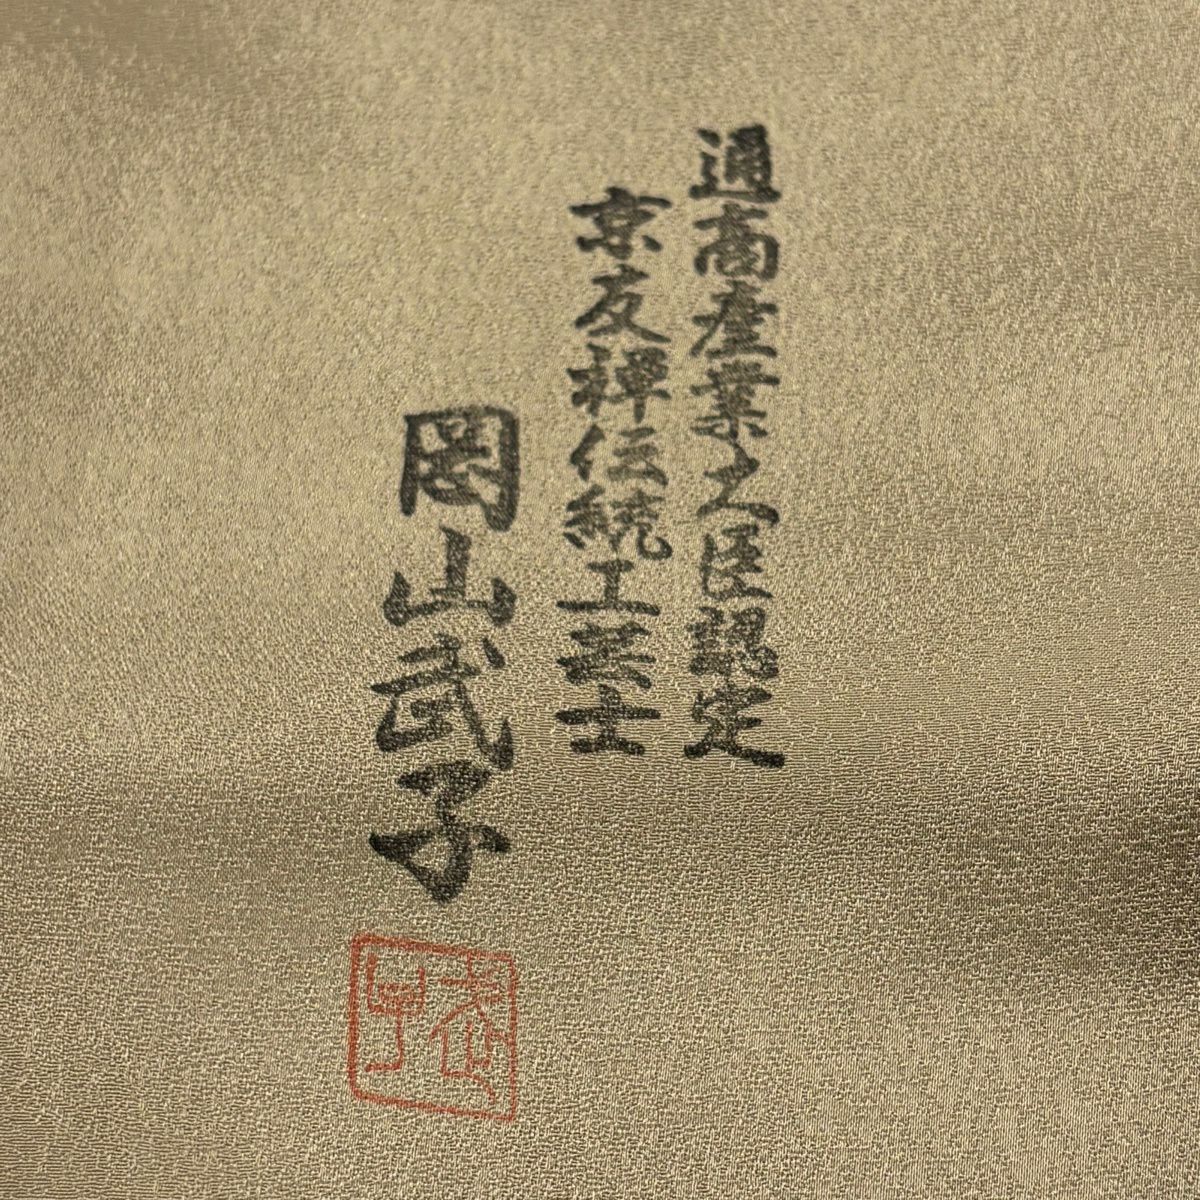 通商産業大臣認定
京友禅伝統工芸士
岡山武子